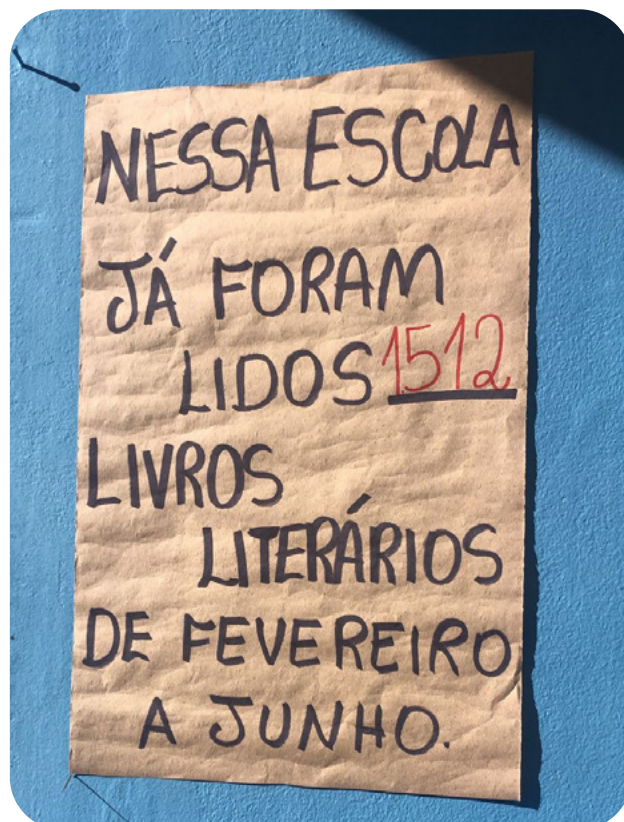 NESSA ESCOLA
JÁ FORAM
LIDOS 1512
LIVROS
LITERÁRIOS
DE FEVEREIRO
A JUNHO.